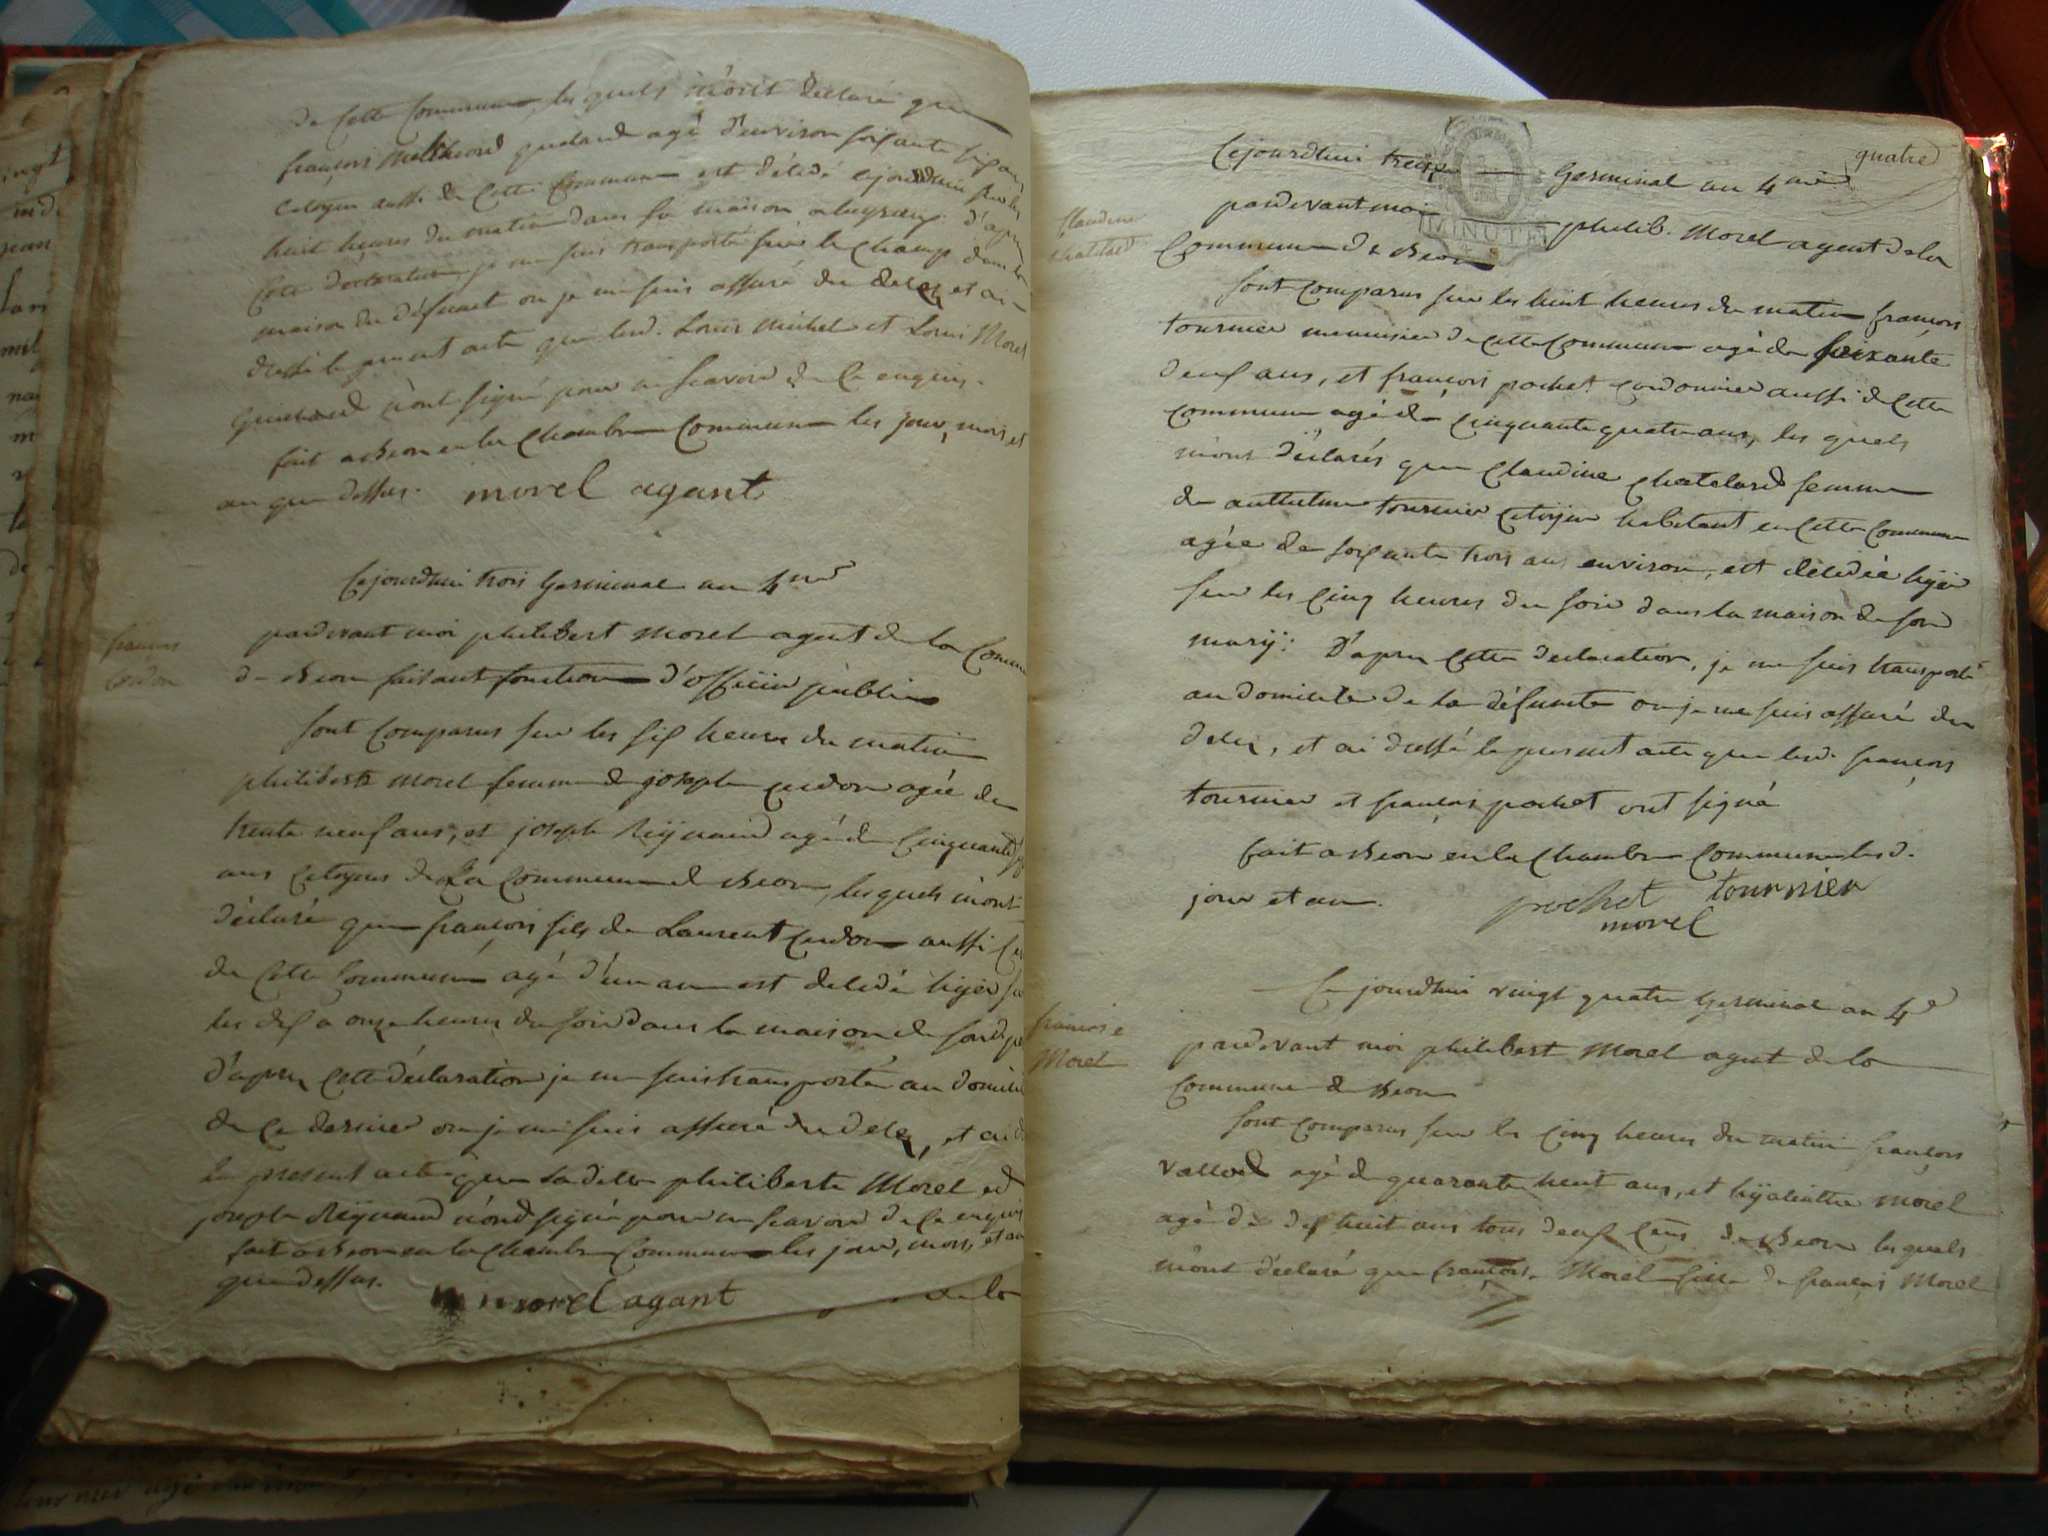 de cette Commune, les quels m'ont déclaré que
françois agé d'environ soisante six ans
citoyen aussi de cette Commune est décédé cejourdhuy sur les
huit heures du matin dans sa maison d'après
cette declaration je me suis transporté sur le champ dans la
maison du défunct ou je me suis assuré du decez et ai
dressé le present acte que lesd. Louis Michel et Louis Morel
n'ont signé pour ne scavoir de ce enquis.
fait a Beon en la Chambre Commune les jour, mois et
an que dessus. morel agant
Cejourdhui trois Germinal an 4me
françois
Cerdon
pardevant moi philibert Morel agent de la Commune
de Beon faisant fonction d'officier public
sont comparus sur les six heures du matin
philiberte Morel femme de joseph Cerdon agée de
trente neuf ans, et joseph Reynaud agé de Cinquante six
ans citoyens de La Commune de Beon, lesquels m'ont
déclaré que françois fils de Laurent Cerdon aussi
de cette Commune agé d'un an est decedé hyer sur
les dix a onze heures du soir dans la maison de sond. pe
d'après cette déclaration je me suis transporté au domicile
de ce dernier ou je me suis assuré du decez, et ai
le present acte que ladite philiberte Morel et
joseph Reynaud n'ond signé pour ne scavoir de ce enquis
fait a Beon en la Chambre Commune les jour, mois, et an
que dessus.
morel agant
de la
quatre
Cejourdhui treize Germinal an 4me
Claudine
Chatelard
pardevant moi philib. Morel agent de la
MINUTE
Commune de Beon
sont comparus sur les huit heures du matin françois
tournier menuisier de cette Commune agé de soixante
deux ans, et françois pochet cordonnier aussi de cette
commune agé de cinquante quatre ans, les quels
m'ont déclarés que Claudine Chatelard femme
de anthelme tournier citoyen habitant en cette Commune
agée de soisante trois ans environ, est décédée hyer
sur les cinq heures du soir dans la maison de son
mary: D'apres cette declaration, je me suis transporté
au domicile de la défunte ou je me suis assuré du
decez, et ai dressé le present acte que lesd. françois
tournier et francois pochet ont signé
fait a Beon en la Chambre Commune lesd.
jour et an. pochet tournier
morel
Ce jourdhui vingt quatre Germinal an 4e
francoise
Morel
pardevant moi philibert Morel agent de la
Commune de Beon
sont comparus sur les cinq heures du matin françois
vallod agé de quarante huit ans, et hyacinthe Morel
agé de dix huit ans tous deux de Beon lesquels
m'ont déclaré que françoise Morel fille de françois Morel